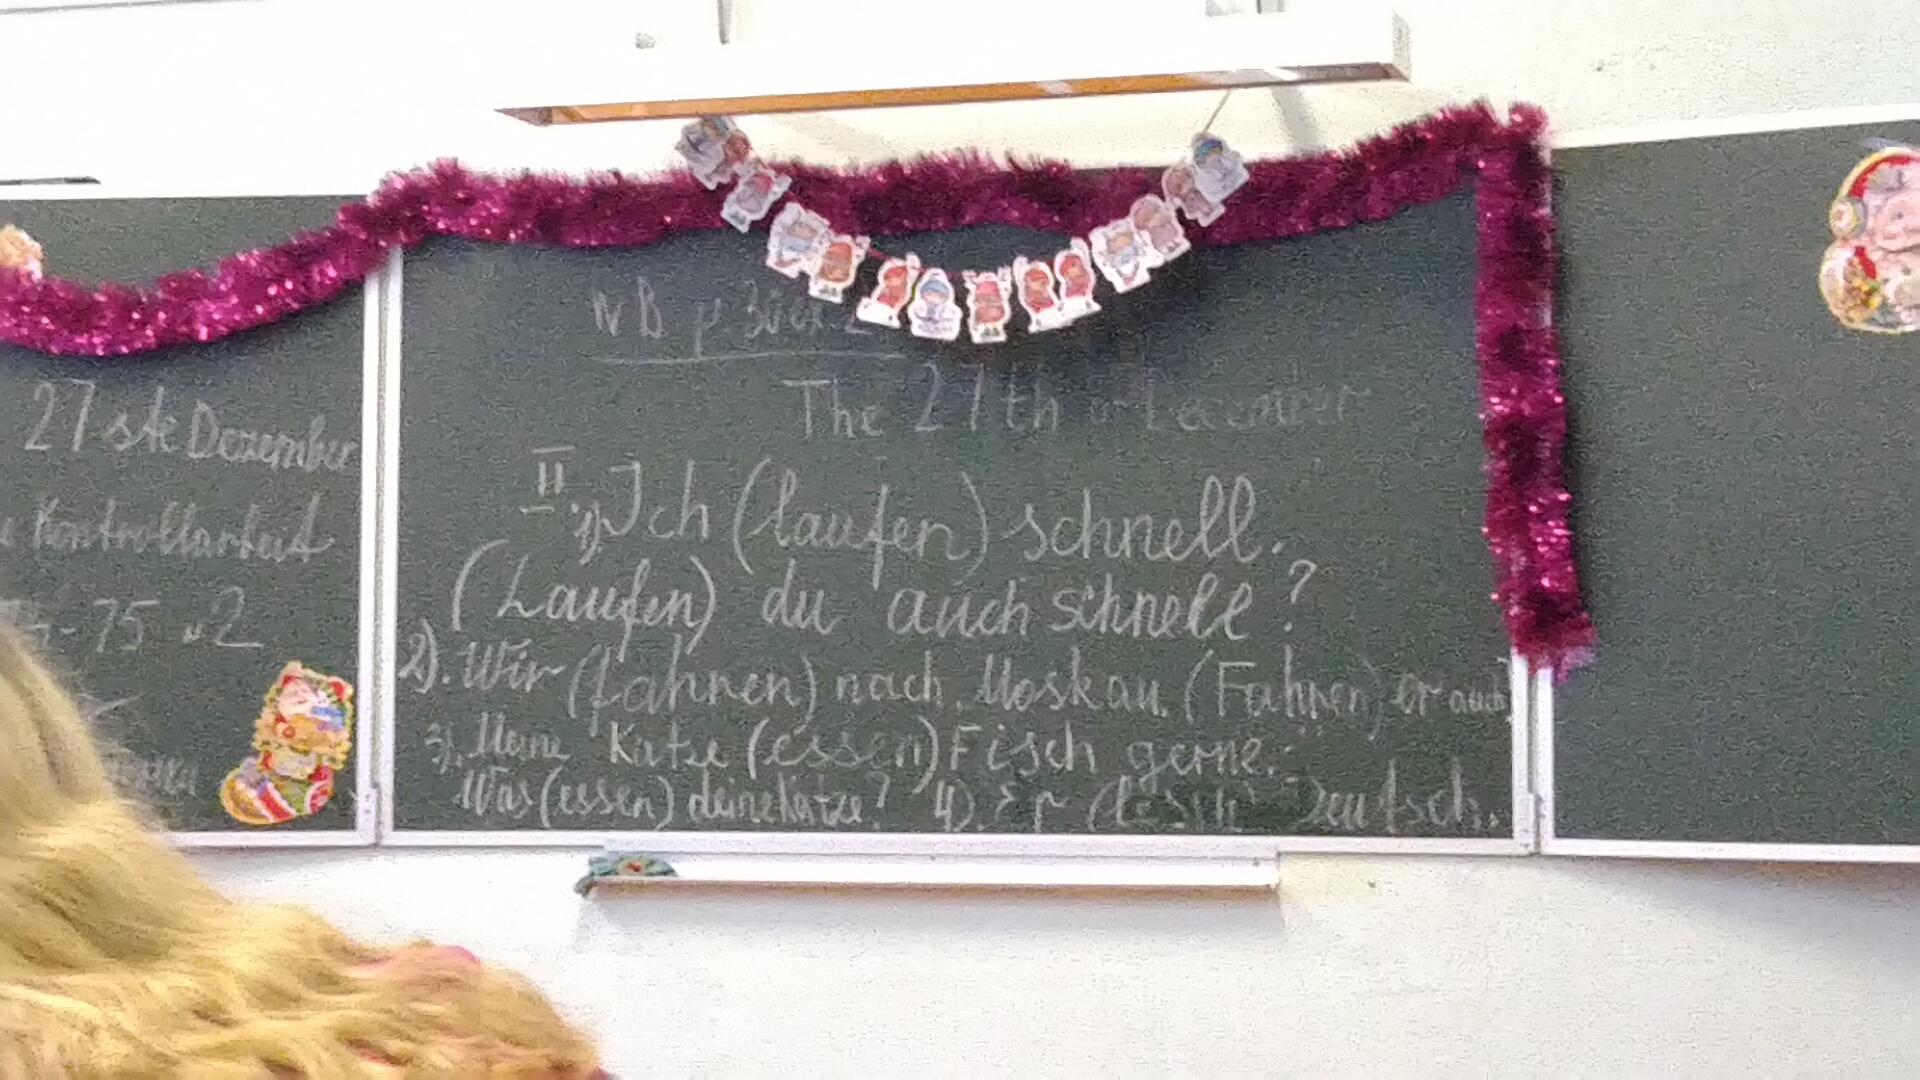 27 ste Dezember
Kontrollarbeit
75 №2
WB p 30 ex 2
The 27th
II. 1). Ich (laufen) schnell.
(Laufen) du auch schnell?
2). Wir (fahren) nach Moskau. (Fahren) er auch
3). Meine Katze (essen) Fisch gerne.
Was (essen) deine Katze? 4). Er Deutsch.